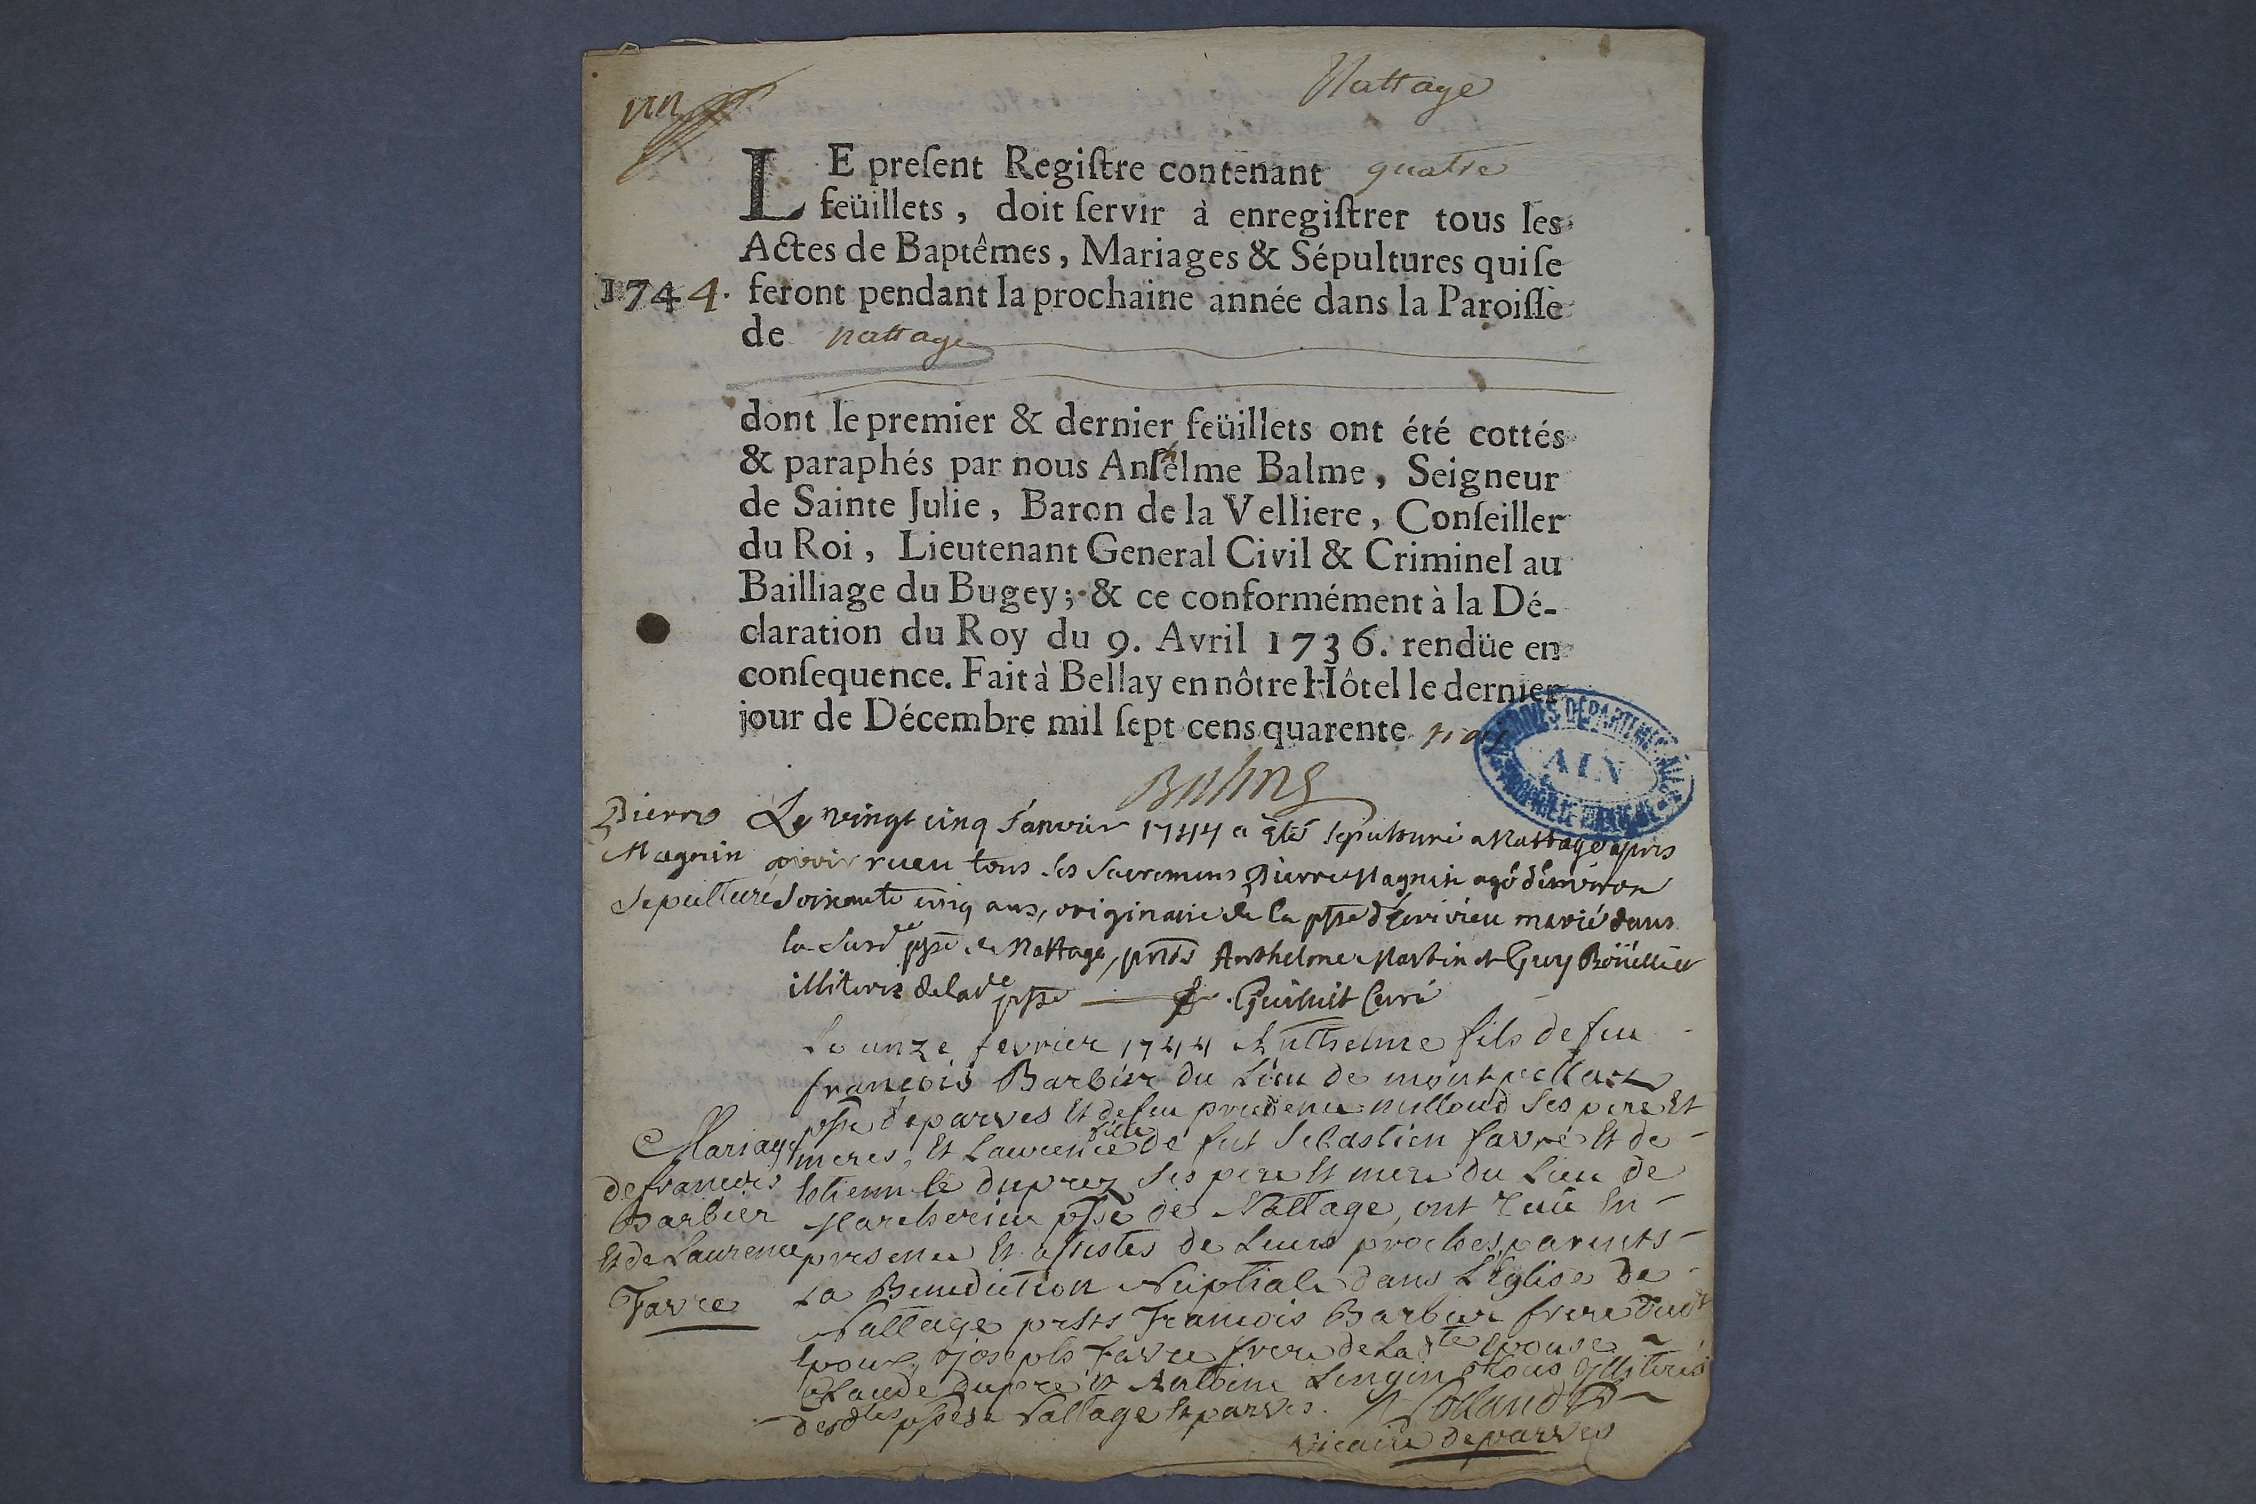 un
Nattage
LE preſent Regiſtre contenant quatre
feüillets, doit ſervir à enregiſtrer tous les
Actes de Baptêmes, Mariages & Sépultures qui ſe
1744. feront pendant la prochaine année dans la Paroiſſe
de nattage
dont le premier & dernier feüillets ont été cottés
& paraphés par nous Anſelme Balme, Seigneur
de Sainte Julie, Baron de la Velliere, Conſeiller
du Roi, Lieutenant General Civil & Criminel au
Bailliage du Bugey; & ce conformément à la Dé-
claration du Roy du 9. Avril 1736. rendüe en
conſequence. Fait à Bellay en nôtre Hôtel le dernier
jour de Décembre mil ſept cens quarente trois
Balme
ARCHIVES DÉPARTEMENTALES
AIN
Pierre
Magnin
Sepulture
Le vingt cinq Janvier 1744 a été sepulturé a Nattage apres
avoir receu tous les Sacremens Pierre Magnin agé d'environ
Soixante cinq ans, originaire de la psse d'Yzivieu marié dans
la susde psse de Nattage, pnts Anthelme Martin et Guy Boüillier
illiterez de lade psse Guilluit Curé
Mariage
de francois
Barbier
Et de Laurence
Favre
Le unze fevrier 1744 Anthelme fils de feu
francois Barbier du Lieu de montpellas
psse de parves Et de feu prudence milloud Ses pere Et
meres, Et Laurence fille de fut Sebastien favre Et de
Estiennete duprez Ses pere Et mere du Lieu de
Marcherieu psse de Nattage, ont reçû En
presence Et assistes de Leurs proches parents
La Benediction Nuptiale dans L'Eglise de
Nattage prsts Francois Barbier frere dudt
Epoux, Joseph favre frere de Ladte Epouse
Claude dupré Et Antoine Lengin tous Illiterés
desdtes psses de Nattage Et parves. Rolland
vicaire de parves